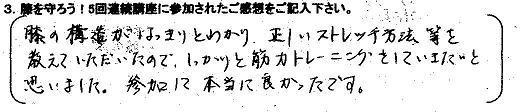 3. 膝を守ろう！5回連続講座に参加されたご感想をご記入下さい。
膝の構造がはっきりとわかり、正しいストレッチ方法等を
教えていただいたので、しっかりと筋力トレーニングをしていきたいと
思いました。参加して本当に良かったです。